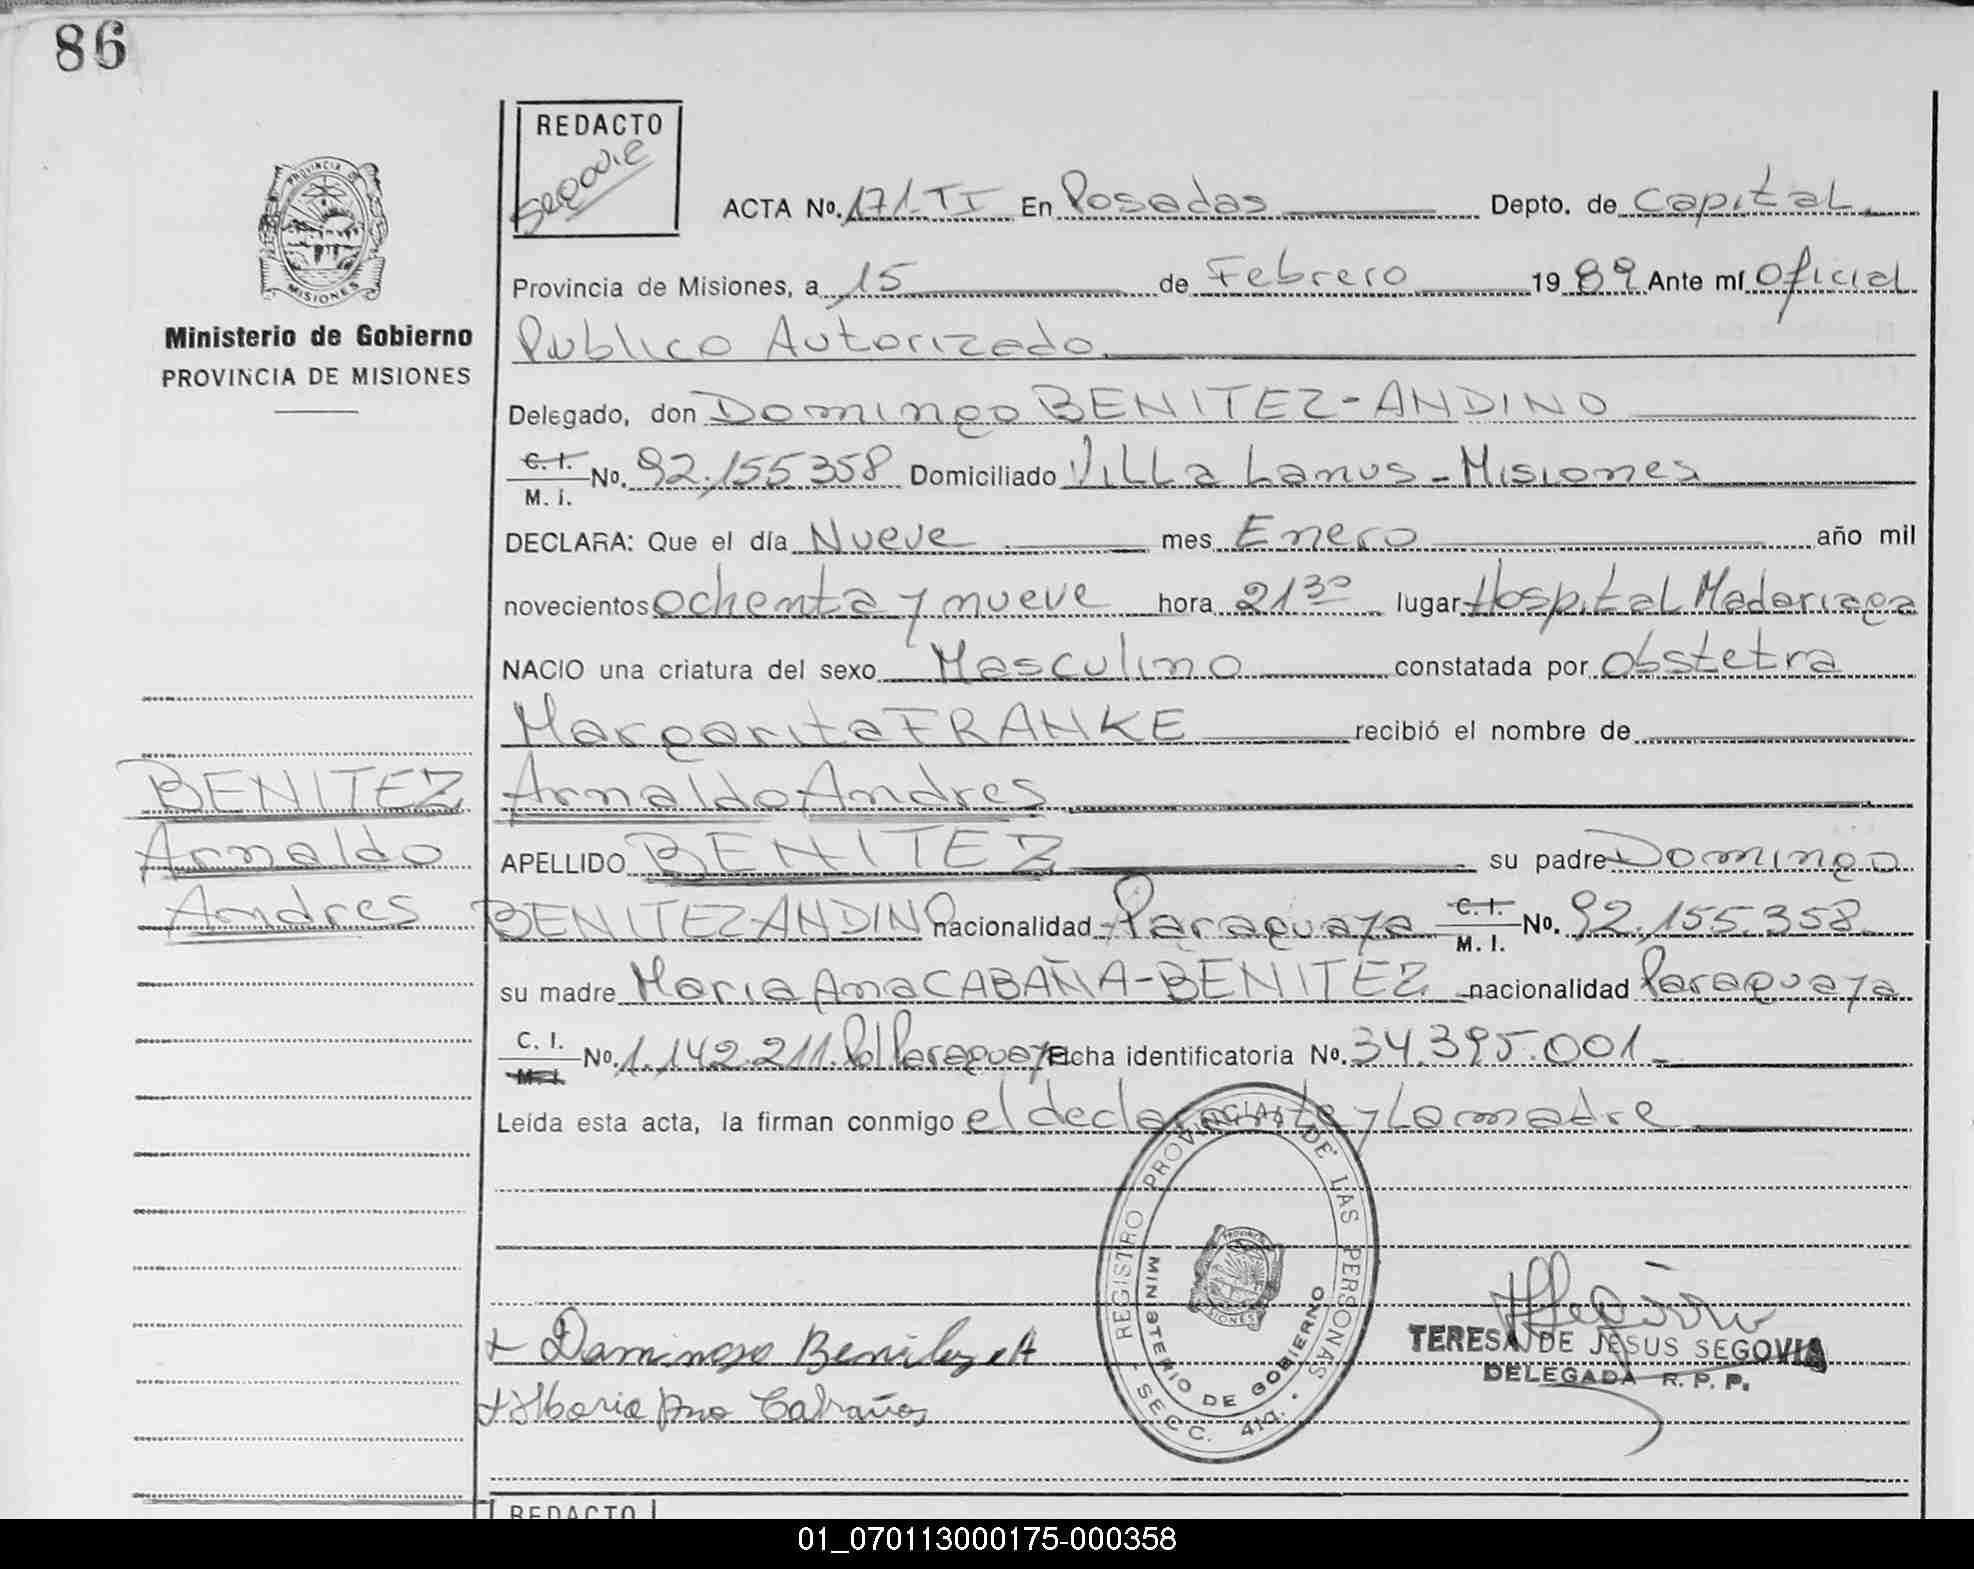 86
REDACTO
Segovia
PROVINCIA DE
MISIONES
Ministerio de Gobierno
PROVINCIA DE MISIONES
ACTA No. 171. TI En Posadas Depto. de Capital
Provincia de Misiones, a 15 de Febrero 1989 Ante mí Oficial
Publico Autorizado
Delegado, don Domingo BENITEZ-ANDINO
C. I. M. I. No. 92.155358 Domiciliado Villa Lanus - Misiones
DECLARA: Que el día Nueve mes Enero año mil
novecientos ochenta y nueve hora 21 30 lugar Hospital Madariaga
NACIO una criatura del sexo Masculino constatada por Obstetra
Margarita FRANKE recibió el nombre de
Arnaldo Andres
APELLIDO BENITEZ su padre Domingo
BENITEZ ANDINO nacionalidad Paraguaya C. I. M. I. No. 92.155.358
su madre Maria Ana CABAÑA-BENITEZ nacionalidad Paraguaya
C. I. M. I. No. 1.142.211. Pol Paraguaya Ficha identificatoria No. 34.395.001
Leída esta acta, la firman conmigo el declarante y La madre
BENITEZ
Arnaldo
Andres
REGISTRO PROVINCIAL DE LAS PERSONAS
MINISTERIO DE GOBIERNO
SECC. 4ta.
MISIONES
Domingo Benitez A
Maria Ana Cabañas
TERESA DE JESUS SEGOVIA
DELEGADA R. P. P.
REDACTO
01_070113000175-000358